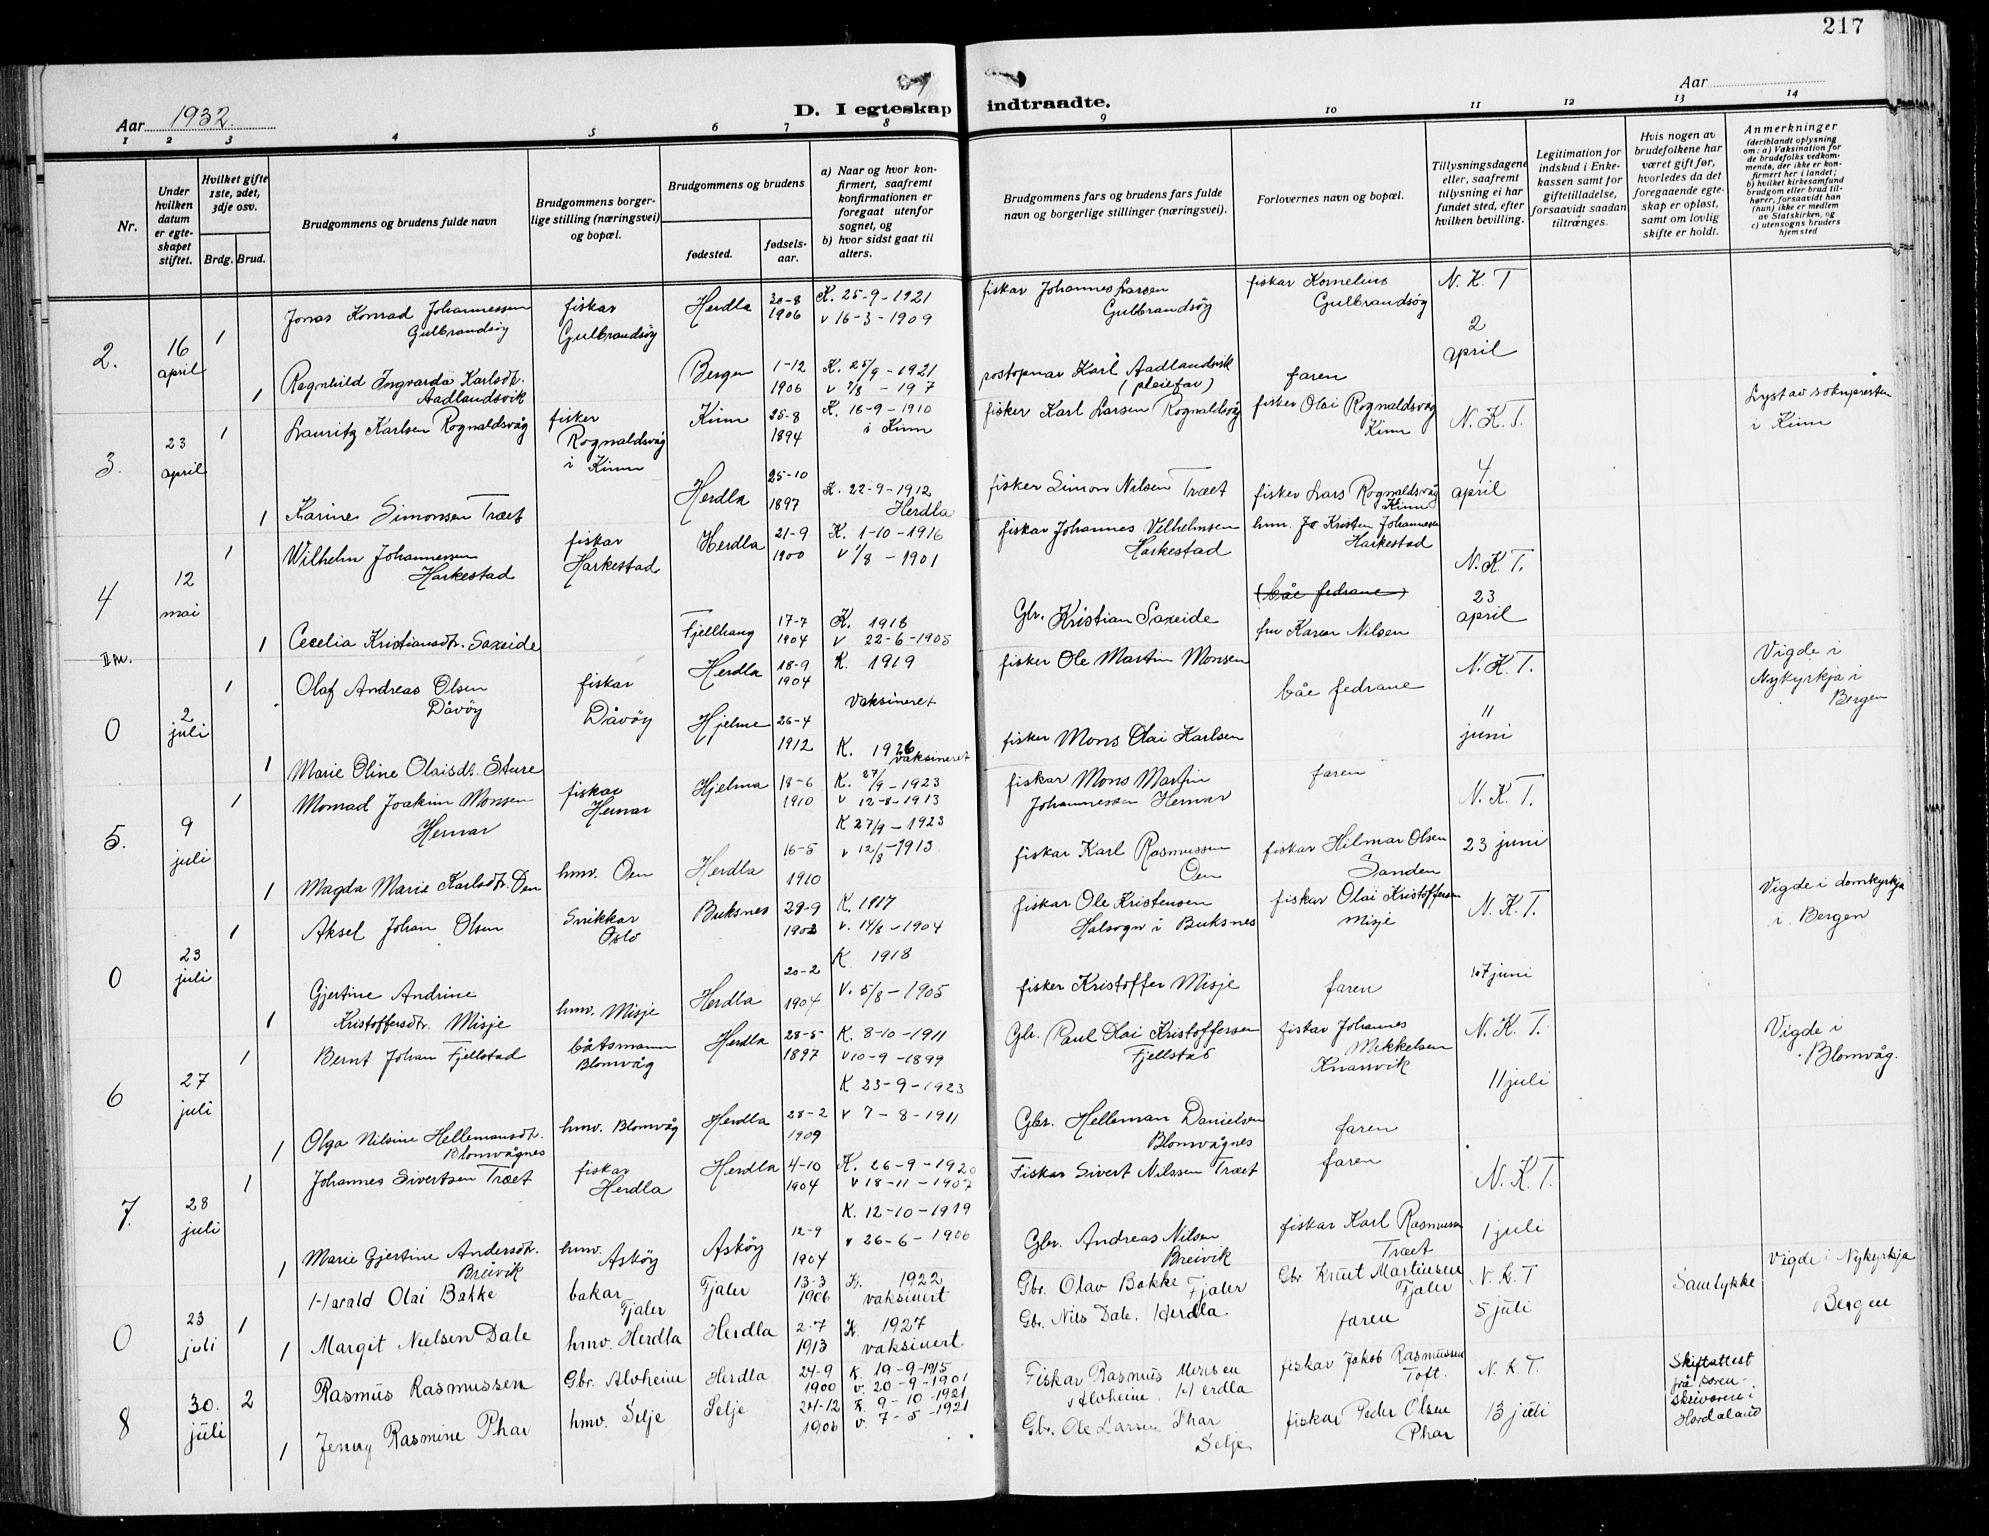 217
Aar 1932.
D. I egteskap indtraadte.
Aar
1 2 3 4 5 6 7 8 9 10 11 12 13 14
Nr.
Under hvilken datum er egteskapet stiftet.
Hvilket gifte 1ste, 2det, 3dje osv.
Brdg. Brud.
Brudgommens og brudens fulde navn
Brudgommens borgerlige stilling (næringsvei) og bopæl.
Brudgommens og brudens
fødested.
fødselsaar.
a) Naar og hvor konfirmert, saafremt konfirmationen er foregaat utenfor sognet, og
b) hvor sidst gaat til alters.
Brudgommens fars og brudens fars fulde navn og borgerlige stillinger (næringsvei).
Forlovernes navn og bopæl.
Tillysningsdagene eller, saafremt tillysning ei har fundet sted, efter hvilken bevilling.
Legitimation for indskud i Enkekassen samt for giftetilladelse, forsaavidt saadan tiltrænges.
Hvis nogen av brudefolkene har været gift før, hvorledes da det foregaaende egteskap er opløst, samt om lovlig skifte er holdt.
Anmerkninger
(deriblandt oplysning om: a) Vaksination for de brudefolks vedkommende, der ikke er konfirmert her i landet; b) hvilket kirkesamfund brudgom eller brud tilhører, forsaavidt han (hun) ikke er medlem av Statskirken, og c) utensogns bruders hjemsted
2. 16 april 1 Jonas Konrad Johannessen Gulbrandsöy fiskar Gulbrandsöy Herdla 20-8 1906 K. 25-9-1921 v 16-3-1909 fiskar Johannes Larsen Gulbrandsöy fiskar Kornelius Gulbrandsöy N. K. T 2 april
1 Ragnhild Ingvarda Karlsdt. Aadlandsvik Bergen 1-12 1906 K. 25/9-1921 postopnar Karl Aadlandsvik (pleiefar) faren
3. 23 april 1 Lauritz Karlsen Rognaldsvåg fisker Rognaldsvåg i Kinn Kinn 25-8 1894 K. 16-9-1910 i Kinn fisker Karl Larsen Rognaldsvåg fisker Olai Rognaldsvåg Kinn N. K. T. 4 april Lyst av soknepresten i Kinn
1 Karine Simonsen Træet Herdla 25-10 1897 K. 22-9-1912 Herdla fisker Simon Nilsen Træet fisker Lars Rognaldsvåg Kinn
4 12 mai 1 Wilhelm Johannessen Harkestad fiskar Harkestad Herdla 21-9 1900 K. 1-10-1916 v 1/8-1901 fiskar Johannes Vilhelmsen Harkestad hmv. Jo Kristen Johannessen Harkestad N. K. T. 23 april
1 Cecelia Kristiansdt. Saxeide Fjellhaug 17-7 1904 K. 1918 v 22-6-1905 Gbr. Kristian Saxeide (båe fedrane) fru Karen Nilsen
0 2 juli 1 Olaf Andreas Olsen Dåvöy fiskar Dåvöy Herdla 18-9 1904 K. 1919 Vaksineret fisker Ole Martin Monsen båe fedrane N. K. T. 11 juni Vigde i Nykyrkja i Bergen
1 Marie Oline Olaisdt. Sture Hjelme 26-4 1912 K. 1926 vaksineret fisker Mons Olai Karlsen
5. 9 juli 1 Monrad Joakim Monsen Hernar fiskar Hernar Hjelma 18-6 1910 K. 27/9-1923 v 12-8-1913 fiskar Mons Martin Johannessen Hernar faren N. K. T. 23 juni
1 Magda Marie Karlsdt. Oen hmv. Oen Herdla 16-5 1910 K 27/9-1923 v 12/8-1913 fiskar Karl Rasmussen Oen fiskar Hilmar Olsen Sanden
0 23 juli 1 Aksel Johan Olsen Snikkar Oslo Buksnes 29-9 1902 K. 1917 v. 14/8-1904 fiskar Ole Kristensen Halsogn i Buksnes fiskar Olai Kristoffersen Misje N. K. T. Vigde i domkyrkja i Bergen
1 Gjertine Andrine Kristoffersdt. Misje hmv. Misje Herdla 20-2 1904 K 1918 V. 5/8-1905 fisker Kristoffer Misje faren 7 juni
6 27 juli 1 Bernt Johan Fjellstad båtsmann Blomvåg Herdla 28-5 1897 K. 8-10-1911 v 10-9-1899 Gbr. Paul Olai Kristoffersen Fjellstad fiskar Johannes Mikkelsen Knarrvik N. K. T. 11 juli Vigde i Blomvåg.
1 Olga Nilsine Hellemansdt. Blomvågnes hmv. Blomvåg Herdla 28-2 1909 K 23-9-1923 v 7-8-1911 Gbr. Helleman Danielsen Blomvågnes faren
7. 28 juli 1 Johannes Sivertsen Træet fiskar Herdla Herdla 4-10 1904 K. 26-9-1920 v 18-11-1907 Fiskar Sivert Nilssen Træet faren N. K. T.
1 Marie Gjertine Andersdt. Breivik hmv. Asköy Asköy 12-9 1904 K. 12-10-1919 v 26-6-1906 Gbr. Andreas Nilsen Breivik fiskar Karl Rasmussen Træet 1 juli
0 23 juli 1 Harald Olai Bakke bakar Fjaler Fjaler 13-3 1906 K. 1922 vaksinert Gbr. Olav Bakke Fjaler Gbr. Knut Martinsen Fjaler N. K. T Samlykke Vigde i Nykyrkja Bergen
1 Margit Nielsen Dale hmv. Herdla Herdla 2-7 1913 K. 1927 vaksinert Gbr. Nils Dale, Herdla faren 5 juli
8 30. juli 2 Rasmus Rasmussen Gbr. Alvheim Herdla 24-9 1900 K. 19-9-1915 v. 20-9-1901 Fiskar Rasmus Monsen Alvheim, Herdla fiskar Jakob Rasmussen Toft. N. K. T. Skiftattest frå soren-skrivaren i Hordaland
1 Jenny Rasmine Phar hmv. Selje Selje 24-12 1906 K. 9-10-1921 v. 7-5-1921 Gbr. Ole Larsen Phar Selje fiskar Peder Olsen Phar 13 juli